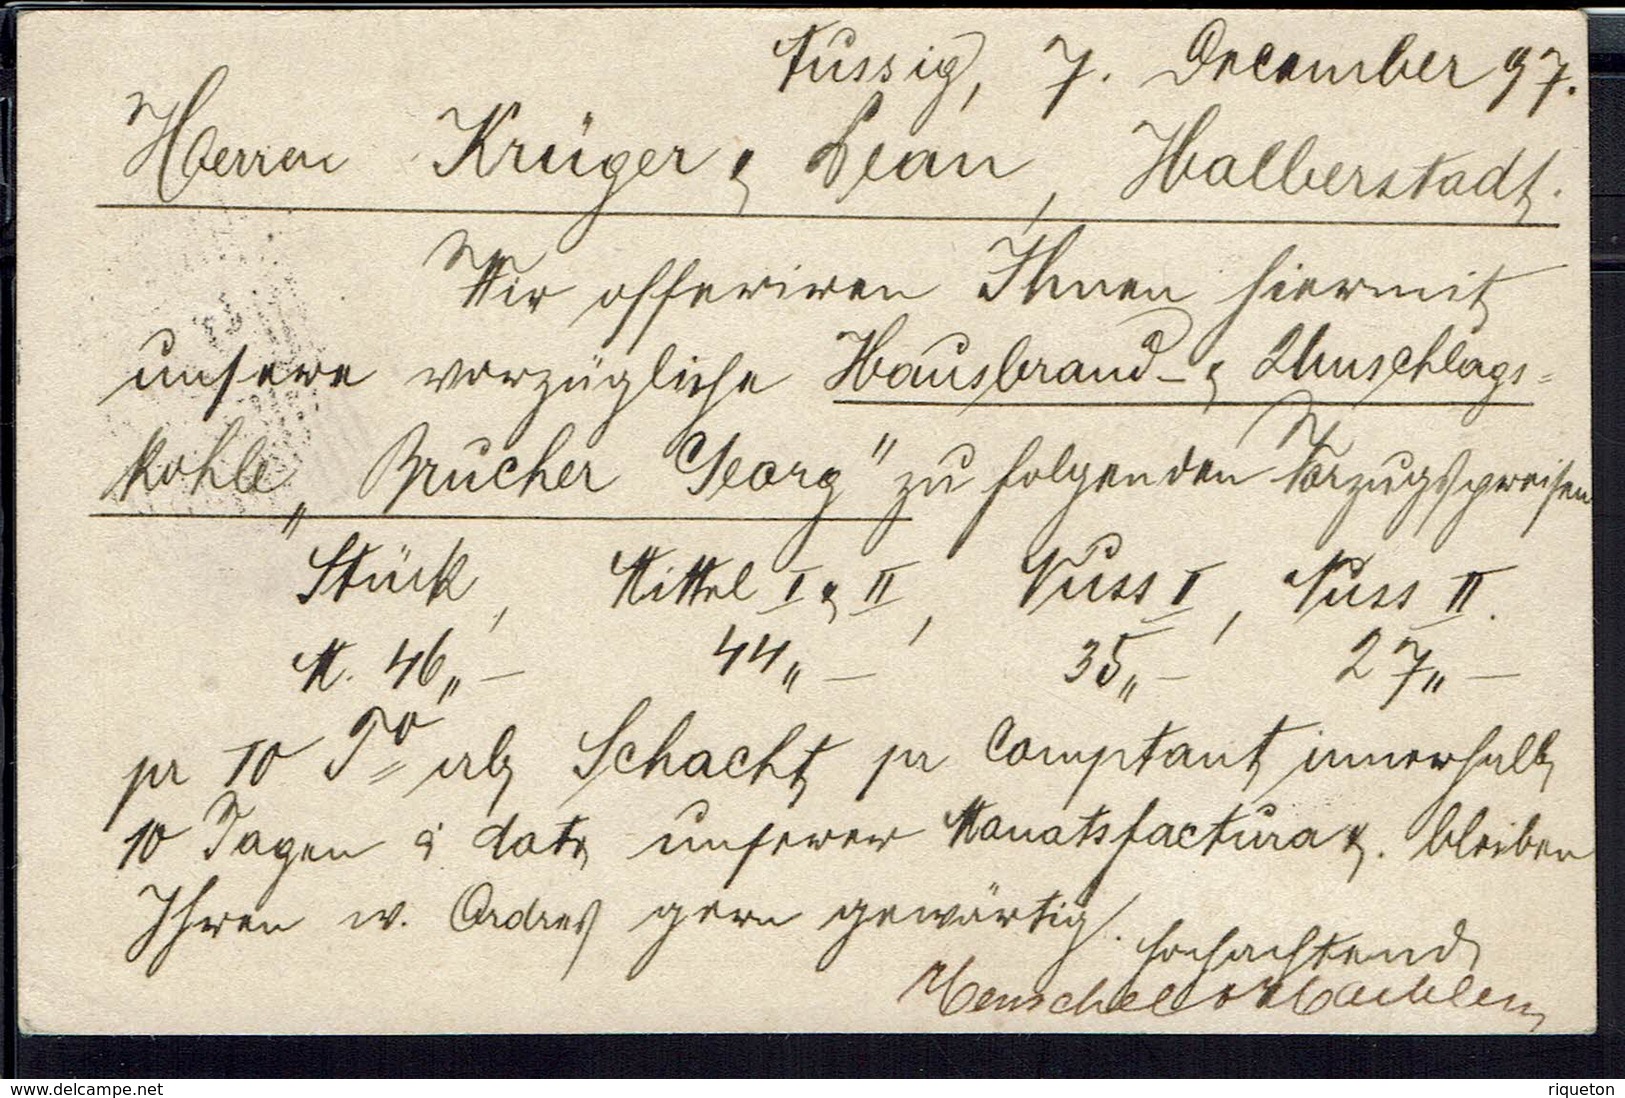 Aussig, 7. December 97.
Herren Krüger & Lean, Halberstadt.
Wir offeriren Ihnen hiermit
unsere vorzügliche Hausbrand- & Umschlags=
kohle „Brucher Georg" zu folgenden Vorzugspreisen
Stück, Mittel I & II, Nuss I, Nuss II.
M. 46„– 44„– 35„– 27„–
pr 10 To= ab Schacht, pr Comptant innerhalb
10 Tagen à dato unserer Monatsfactura &. bleiben
Ihren w. Ordres gern gewärtig.
hochachtend
Henschel &
www.delcampe.net
riqueton